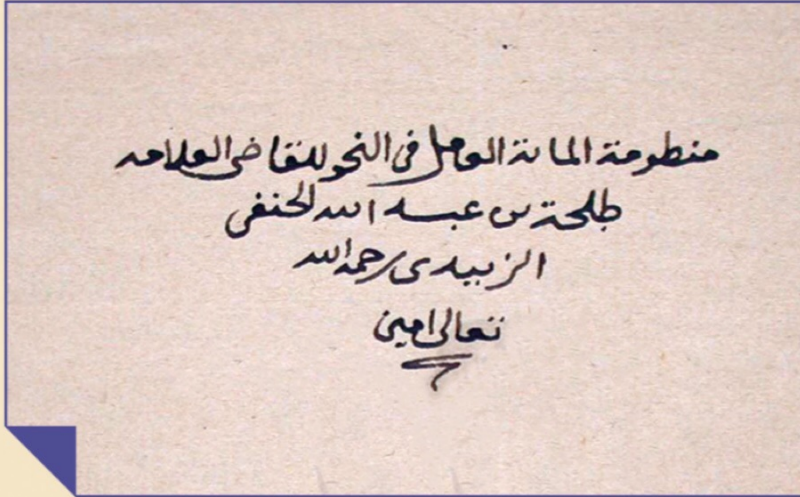 منظومة المائة العامل في النحو للقاضي العلامه
طلحة بن عبد الله الحنفي
الزبيدي رحمه الله
تعالى امين